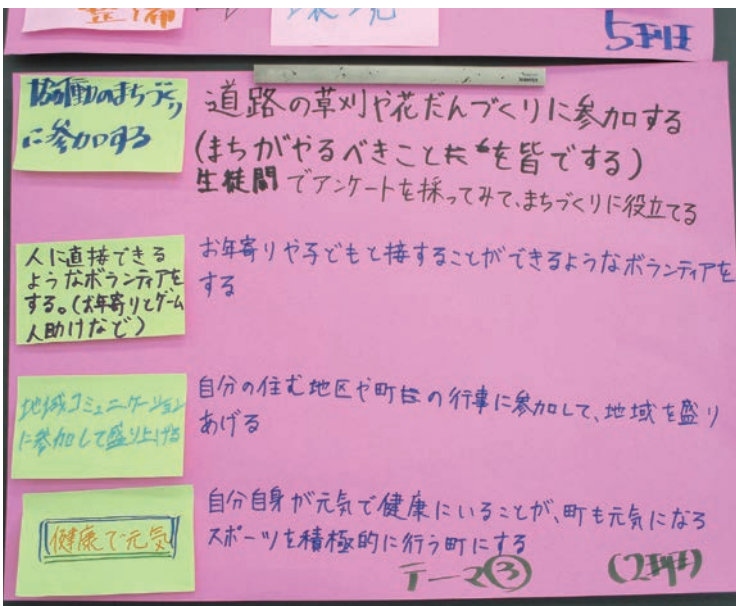 整備
環境
5班
協働のまちづくり
に参加する
道路の草刈や花だんづくりに参加する
(まちがやるべきことを皆でする)
生徒間でアンケートを採ってみて、まちづくりに役立てる
人に直接できる
ようなボランティアを
する。(お年寄りとゲーム
人助けなど)
お年寄りや子どもと接することができるようなボランティアを
する
地域コミュニケーション
に参加して盛り上げる
自分の住む地区や町の行事に参加して、地域を盛り
あげる
健康で元気
自分自身が元気で健康にいることが、町も元気になる
スポーツを積極的に行う町にする
テーマ③
(2班)